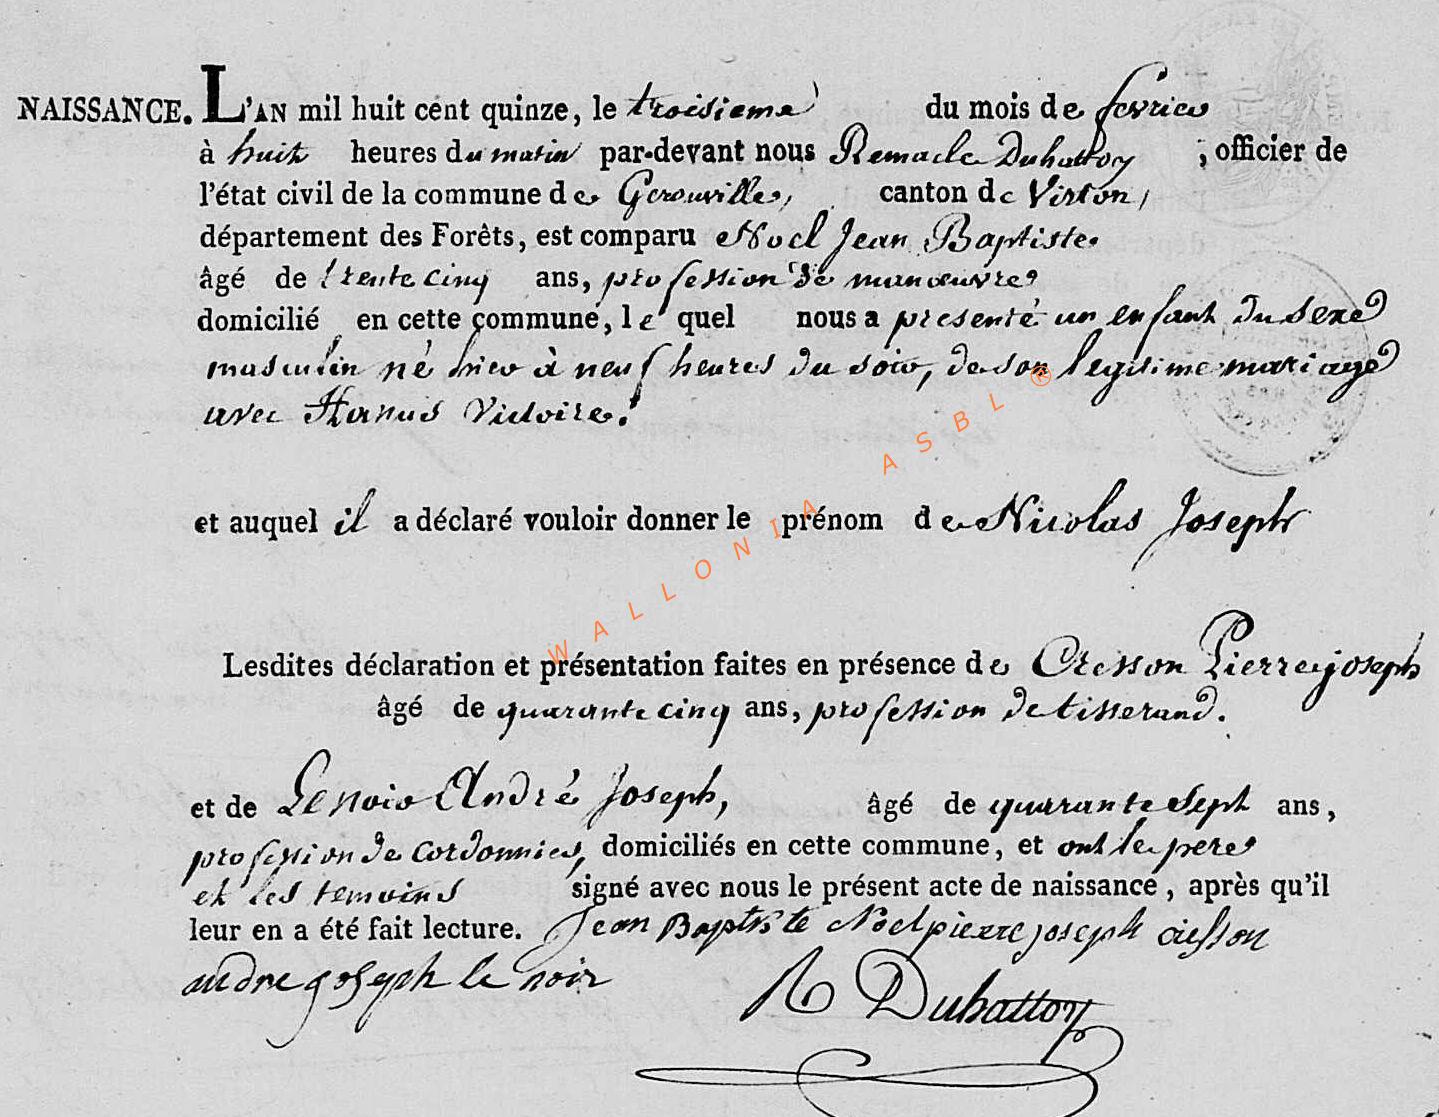 NAISSANCE. L'AN mil huit cent quinze, le troisieme du mois de fevrier
à huit heures du matin par-devant nous Remacle Duhattoy, officier de
l'état civil de la commune de Gerouville, canton de Virton,
département des Forêts, est comparu Noel Jean Baptiste.
âgé de trente cinq ans, profession de manœuvre
domicilié en cette commune, le quel nous a presenté un enfant du sexe
masculin né hier à neuf heures du soir, de son legitime mariage
avec Hanus Victoire.
et auquel il a déclaré vouloir donner le prénom de Nicolas Joseph
Lesdites déclaration et présentation faites en présence de Cresson Pierre joseph
âgé de quarante cinq ans, profession de tisserand.
et de Lenoir André Joseph, âgé de quarante sept ans,
profession de cordonnier, domiciliés en cette commune, et ont le pere
et les temoins signé avec nous le présent acte de naissance, après qu'il
leur en a été fait lecture. Jean Baptiste Noel pierre joseph cresson
andre joseph le noir
R Duhattoy
WALLONIA ASBL ®